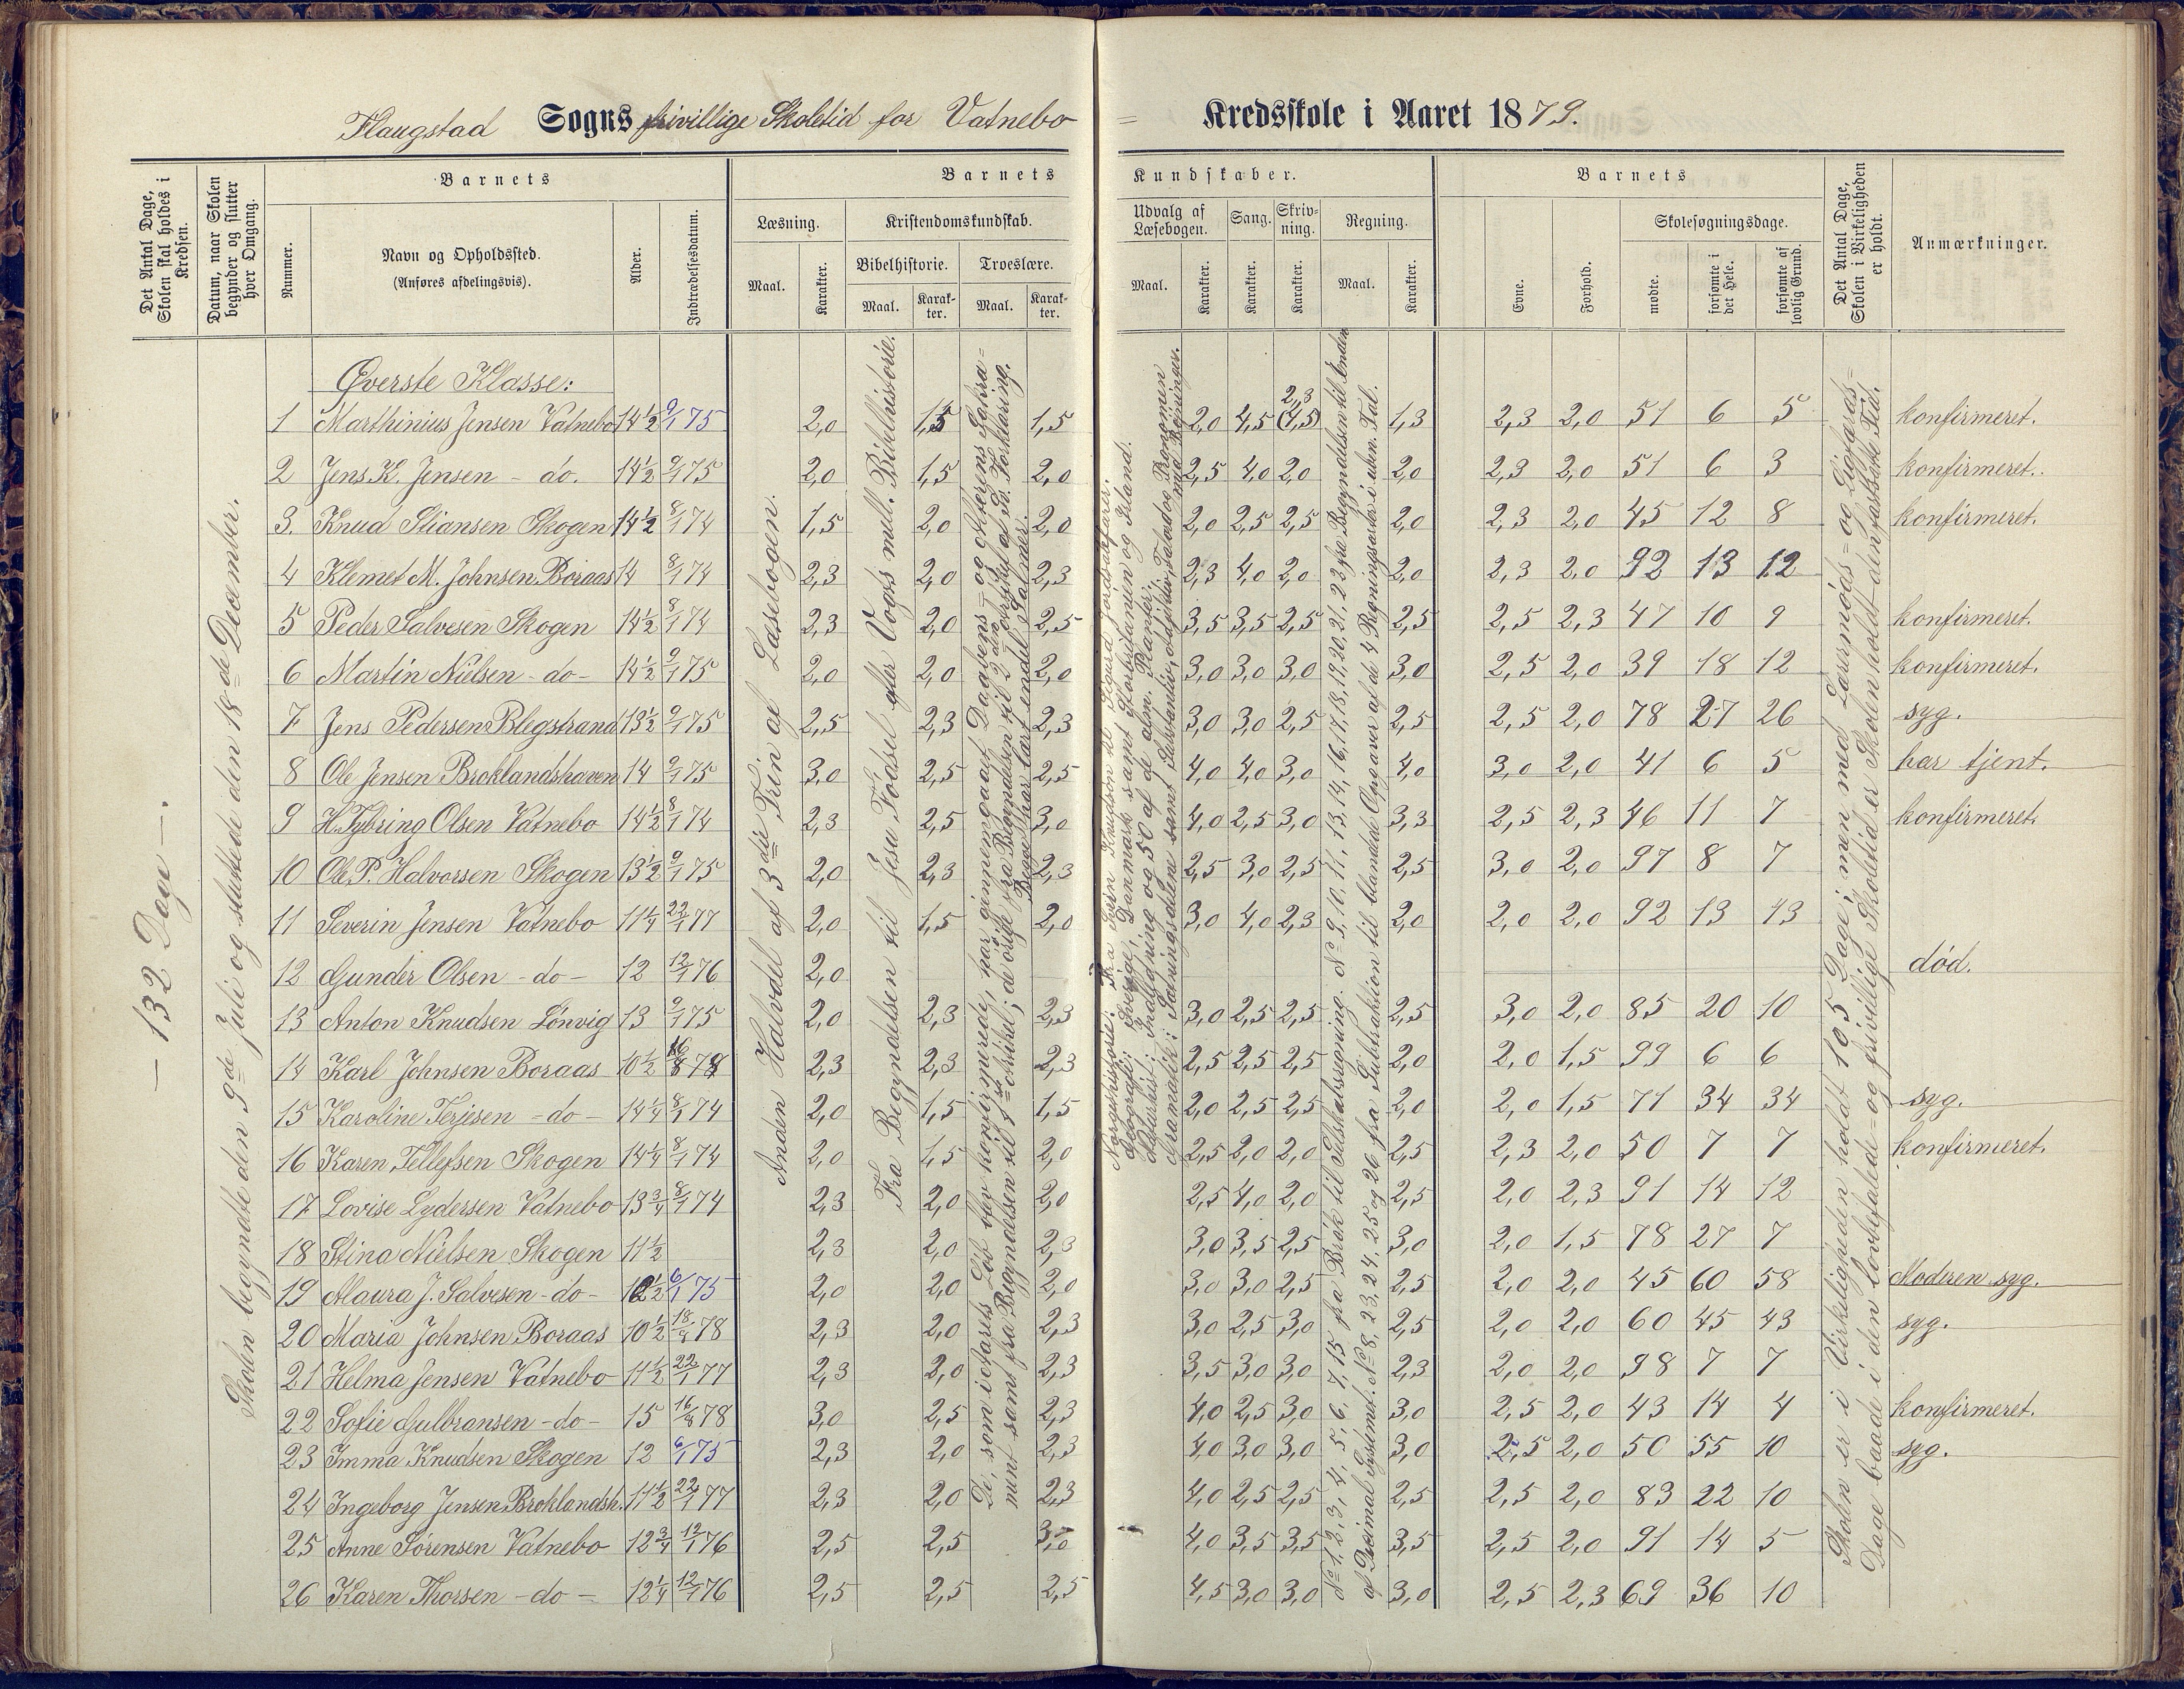 Flaugstad Sogns frivillige Skoletid for Vatnebo = Kredsskole i Aaret 1879.
Det Antal Dage, Skolen skal holdes i Kredsen.
Datum, naar Skolen begynder og slutter hver Omgang.
Barnets
Nummer.
Navn og Opholdssted.
(Anføres afdelingsvis).
Alder.
Indtrædelsesdatum.
Barnets Kundskaber.
Læsning.
Maal.
Karakter.
Kristendomskundskab.
Bibelhistorie.
Maal.
Karakter.
Troeslære.
Maal.
Karakter.
Udvalg af Læsebogen.
Maal.
Karakter.
Sang.
Karakter.
Skrivning.
Karakter.
Regning.
Maal.
Karakter.
Barnets
Evne.
Forhold.
Skolesøgningsdage.
mødte.
forsømte i det Hele.
forsømte af lovlig Grund.
Det Antal Dage, Skolen i Virkeligheden er holdt.
Anmærkninger.
— 132 Dage —.
Skolen begyndte den 9de Juli og sluttede den 18de December.
Anden Halvdel af 3die Trin af Læsebogen.
Fra Begyndelsen til Jesu Fødsel efter Vogts mell. Bibelhistorie.
De, som i Aarets Løb blev konfirmerede, har gjennemgaaet Daabens- og Alterens Sakra=
ment samt fra Begyndelsen til 1ste Artikel; de øvrige fra Begyndelsen til 2den Artikel af P. Forklaring.
Begge har lært endel Salmer.
Norgeshistorie: Fra Svein Knutson til Sigurd Jordsalfarer.
Geografi: Sverige, Danmark samt Storbritanien og Irland.
Naturhist.: Indledning og 50 af de alm. Planter.
Gramatik: Sætningsdelene samt Substantiv, Adjektiv, Talord og Pronomen med Bøininger.
No 1, 2, 3, 4, 5, 6, 7, 15 fra Brøk til Selskabsregning. No 9, 10, 11, 13, 14, 16, 17, 18, 19, 20, 21, 22 fra Begyndelsen til Enden
af Decimal Systemet. No 8, 23, 24, 25 og 26 fra Subtraktion til blandede Opgaver af de 4 Regningsarter i uben. Tal.
Skolen er i Virkeligheden holdt 105 Dage; men med Læremøds= og Ligfærds=
Dage baade i den lovbefalede= og frivillige Skoletid er Skolen holdt den fastsatte Tid.
Øverste Klasse:
1 Marthinius Jensen Vatnebo 14½ 9/1 75 2,0 1,5 1,5 2,0 4,5 2,3 (4,5) 1,3 2,3 2,0 51 6 5 konfirmeret.
2 Jens K. Jensen - do. 14½ 9/1 75 2,0 1,5 2,0 2,5 4,0 2,0 2,0 2,3 2,0 51 6 3 konfirmeret.
3. Knud Stiansen Skogen 14½ 8/1 74 1,5 2,0 2,0 2,0 2,5 2,5 2,0 2,3 2,0 45 12 8 konfirmeret.
4 Klemet M. Johnsen Boraas 14 8/1 74 2,3 2,0 2,3 2,3 4,0 2,0 2,0 2,3 2,0 92 13 12
5 Peder Salvesen Skogen 14½ 8/1 74 2,3 2,0 2,5 3,5 3,5 2,5 2,5 2,5 2,3 47 10 9 konfirmeret.
6 Martin Nielsen - do - 14½ 9/1 75 2,0 2,0 2,0 3,0 3,0 3,0 3,0 2,5 2,0 39 18 12 konfirmeret.
7 Jens Pedersen Blegstrand 13½ 9/1 75 2,5 2,3 2,3 3,0 3,0 2,5 2,5 2,5 2,0 78 27 26 syg.
8 Ole Jensen Broklandshaven 14 9/1 75 3,0 2,5 2,5 4,0 4,0 3,0 4,0 3,0 2,0 41 6 5 har tjent.
9 H. Tybring Olsen Vatnebo 14½ 8/1 74 2,3 2,5 3,0 4,0 2,5 3,0 3,3 2,5 2,3 46 11 7 konfirmeret.
10 Ole P. Halvorsen Skogen 13½ 9/1 75 2,0 2,3 2,3 2,5 3,0 2,5 2,5 3,0 2,0 97 8 7
11 Severin Jensen Vatnebo 11¼ 22/1 77 2,0 1,5 2,0 3,0 4,0 2,3 2,0 2,0 2,0 92 13 13
12 Gunder Olsen - do - 12 12/1 76 2,0 død.
13 Anton Knudsen Lønvig 13 9/1 75 2,0 2,3 2,3 3,0 2,5 2,5 2,5 3,0 2,0 85 20 10
14 Karl Johnsen Boraas 10½ 16/8 78 2,3 2,3 2,3 2,5 2,5 2,5 2,0 2,0 1,5 99 6 6
15 Karoline Terjesen - do - 14¼ 8/1 74 2,0 1,5 1,5 2,0 2,5 2,5 2,0 2,0 1,5 71 34 34 syg.
16 Karen Tellefsen Skogen 14¼ 8/1 74 2,0 1,5 2,0 2,5 2,0 2,0 2,5 2,3 2,0 50 7 7 konfirmeret.
17 Lovise Lydersen Vatnebo 13¾ 8/1 74 2,3 2,0 2,0 2,5 4,0 2,0 2,5 2,0 2,3 91 14 12
18 Stina Nielsen Skogen 11½ 2,3 2,0 2,3 3,0 3,5 2,5 3,0 2,0 1,5 78 27 7
19 Maura J. Salvesen - do - 12½ 6/1 75 2,0 2,0 2,0 3,0 3,0 2,5 2,5 2,0 2,0 45 60 58 Moderen syg.
20 Maria Johnsen Boraas 10½ 18/8 78 2,3 2,0 2,3 3,0 2,5 3,0 2,5 2,0 2,0 60 45 43 syg.
21 Helma Jensen Vatnebo 11½ 22/1 77 2,3 2,0 2,3 3,5 3,0 3,0 2,3 2,0 2,0 98 7 7
22 Sofie Gulbransen - do - 15 16/8 78 3,0 2,5 2,3 4,0 2,5 3,0 3,0 2,5 2,0 43 14 4 konfirmeret.
23 Imma Knudsen Skogen 12 6/1 75 2,3 2,0 2,3 4,0 3,0 3,0 3,0 2,5 2,0 50 55 10 syg.
24 Ingeborg Jensen Broklandsh. 11½ 22/1 77 2,3 2,0 2,3 4,0 2,5 2,5 2,5 2,5 2,0 83 22 10
25 Anne Sørensen Vatnebo 12¾ 12/1 76 2,5 2,5 3,0 4,0 3,5 3,5 3,5 2,5 2,0 91 14 5
26 Karen Thorsen - do - 12¼ 12/1 76 2,5 2,5 2,5 4,5 3,0 3,0 3,0 2,5 2,3 69 36 10